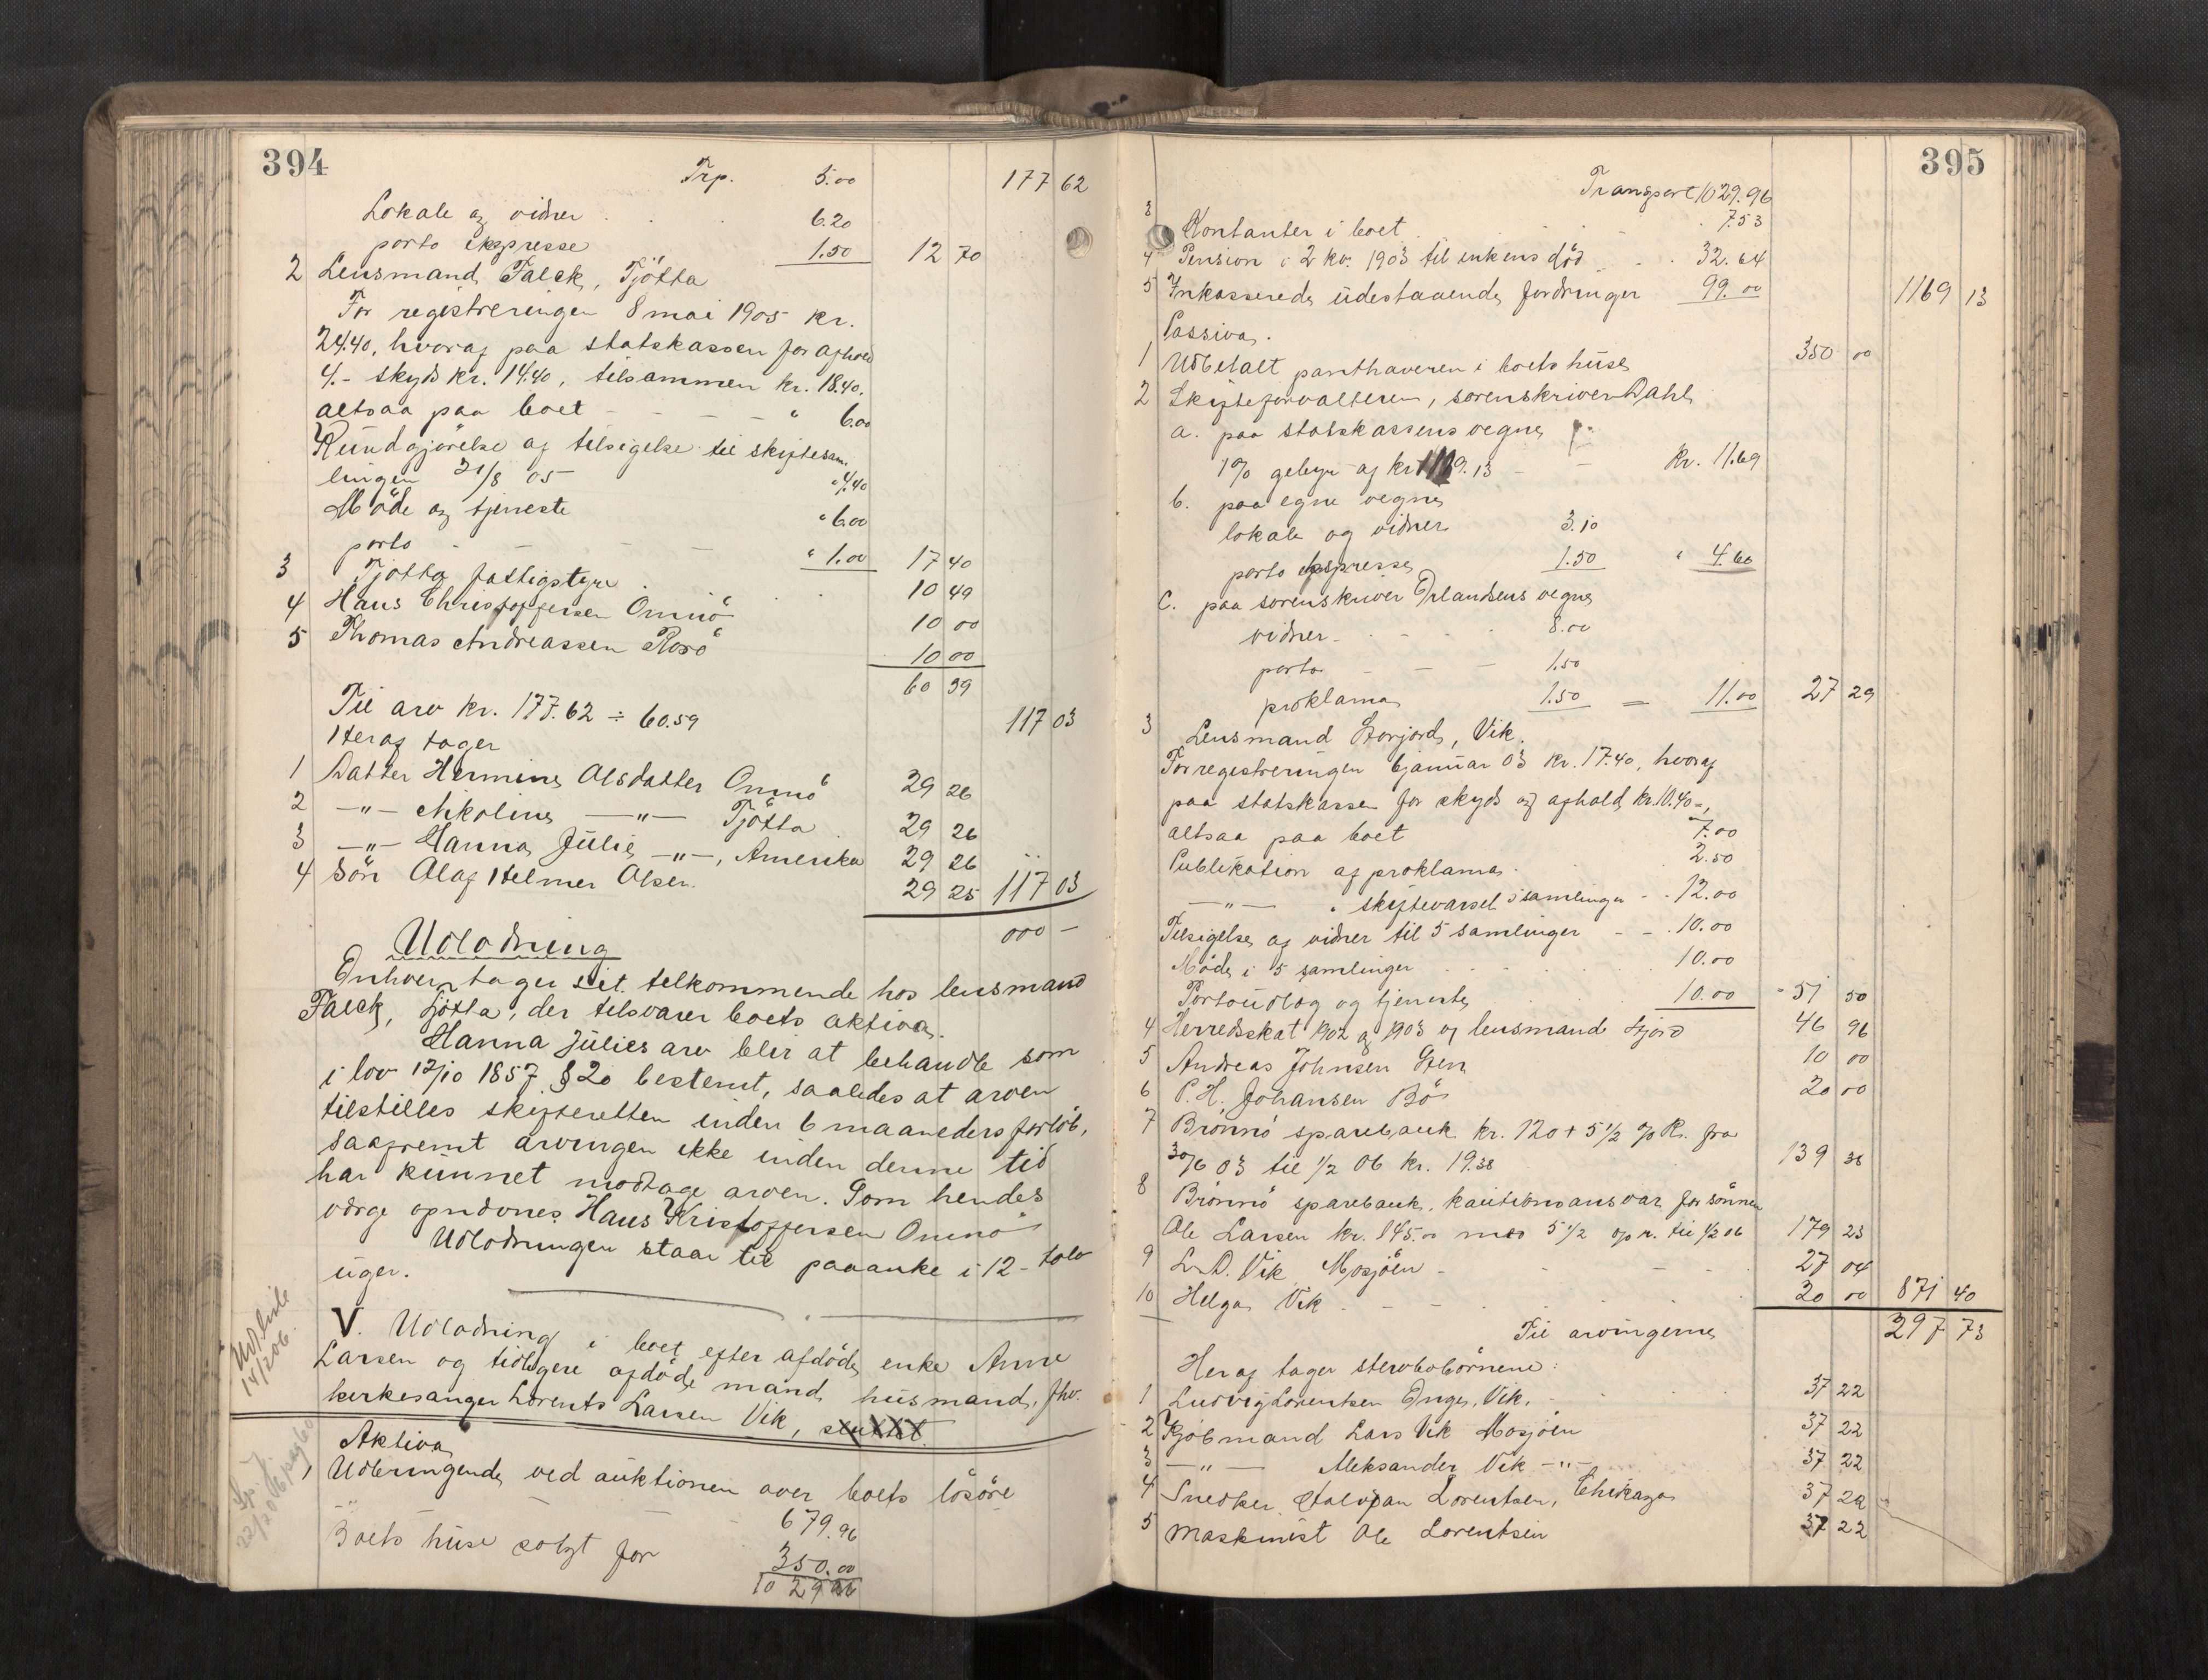 394
Trp. 5.00 177 62
Lokale og vidner . . 6.20
porto ekspresse 1.50 12 70
2 Lensmand Falck, Tjøtta
For registreringen 8 mai 1905 kr.
24.40, hvoraf paa statskassen for ophold
4.- skyds kr. 14.40, tilsammen kr. 18.40.
altsaa paa boet - - - - " 6.00
Kundgjørelse af tilsigelse til skiftesam-
lingen 21/8 05 " 4.40
Møde og tjeneste " 6.00
porto - - - " 1.00 17 40
3 Tjøtta fattigstyre . . 10 49
4 Hans Christoffersen Omnø 10 00
5 Thomas Andreassen Rosø 10 00
60 59
Til arv kr. 177.62 ÷ 60.59 117 03
Heraf tager
1 Datter Hermine Olsdatter Omnø 29 26
2 -"- Nikoline -"- Tjøtta 29 26
3 -"- Hanna Julie -"-, Amerika 29 26
4 Søn Olaf Helmer Olsen. 29 25 117 03
000 -
Udlodning
Enhver tager sit tilkommende hos lensmand
Falck, Tjøtta, der tilsvarer boets aktiva.
Hanna Julies arv blir at behandle som
i lov 12/10 1857 § 20 bestemt, saaledes at arven
tilstilles skifteretten inden 6 maaneders forløb,
saafremt arvingen ikke inden denne tid
har kunnet modtage arven. Som hendes
værge opnævnes Hans Kristoffersen Omnø
Udlodningen staar til paaanke i 12 - tolv
uger.
14/2 06.
V. Udlodning i boet efter afdøde enke Anne
Larsen og tidligere afdøde mand, husmand, fhv.
kirkesanger Lorents Larsen Vik, sluttet.
Aktiva
1 Udbringende ved auktionen over boets løsøre
679.96
Boets huse solgt for 350.00
1029 96
395
Transport 1029.96
3 Kontanter i boet . . . 7.53
4 Pension i 2 kv. 1903 til enkens død . . 32.64
5 Inkasserede udestaaende fordringer 99.00 1169 13
Passiva.
1 Udbetalt panthaveren i boets huse 350 00
2 Skifteforvalteren, sorenskriver Dahl
a. paa statskassens vegne
1% gebyr af kr 1169.13 - - Kr. 11.69
b. paa egne vegne
lokale og vidner 3.10
porto ekspresse 1.50 " 4.60
c. paa sorenskriver Erlandsens vegne
vidner - . - . 8.00
porto - - 1.50
proklama 1.50 = 11.00 27 29
3 Lensmand Storjord, Vik.
For registreringen 6 januar 03 kr. 17.40, hvoraf
paa statskassen for skyds og ophold kr. 10.40 -,
altsaa paa boet 7.00
Publikation af proklama . 2.50
-"- " skiftevarsel 5 samlinger - - 12.00
Tilsigelse af vidner til 5 samlinger - - . 10.00
Møde i 5 samlinger . . . 10.00
Portoudlæg og tjeneste 10.00 - 51 50
4 Herredsskat 1902 og 1903 v/ lensmand 46 96
5 Andreas Johnsen 10 00
6 P. H. Johansen Bø 20 00
7 Brønnø sparebank kr. 120 + 5 1/2 % R. fra
30/6 03 til 1/2 06 kr. 19.38 139 38
8 Brønnø sparebank, kautionsansvar for sønnen
Ole Larsen kr. 145.00 med 5 1/2 % r. til 1/2 06 179 23
9 L. D. Vik Mosjøen - - - 27 04
10 Helga Vik . - - . . 20 00 871 40
Til arvingerne 297 73
Heraf tager stervbobørnene:
1 Ludvig Lorentsen Enge, Vik. - . 37 22
2 Kjøbmand Lars Vik Mosjøen 37 22
3 -"- Aleksander Vik -"- 37 22
4 Snedker Lorentsen, Chikago 37 22
5 Maskinist Ole Lorentsen 37 22